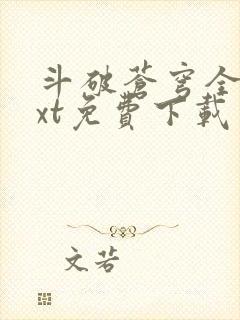 斗破蒼穹全
xt免費下載
文若